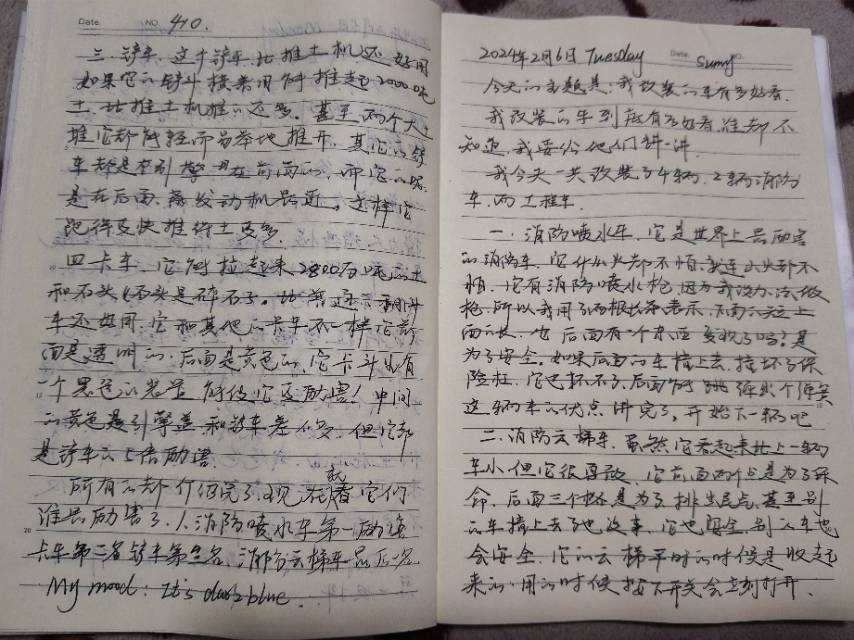 Date. NO. 410.
三、铲车,这个铲车比推土机还好用
如果它的铲斗横来用能推起2000吨
土比推土机推的还多。甚至两个大土
堆它却能轻而易举地推开。其它的铲
车都是引擎在前面的,而它的呢
是在后面,离发动机最近。这样它
跑得又快推得土又多。
四卡车。它能拉起来2800万吨的土
和石头(石头是碎石子)。比普通的翻斗
车还好用。它和其他的卡车不一样它前
面是透明的,后面是黄色的,它卡斗里有
一个黑色的 能使它更励害!中间
的黄色是引擎盖和铲车差不多,但它却
是铲车的上倍励害。
所有的都介绍完了,现在就看它们
谁最励害了。消防喷水车第一励害
卡车第二名铲车第三名,消防云梯车最后一名
My mood: It's dark blue.
2024年2月6日 Tuesday Date. Sunny
今天的主题是:我改装的车有多好看.
我改装的车到底有多好看,谁却不
知道,我要给他们讲一讲.
我今天一共改装了4辆,2辆消防
车,两工程车.
一、消防喷水车,它是世界上最励害
的消防车,它什么火都不怕,就连山火却不
怕,它有消防喷水枪,因为我没办法做
枪,所以我用了两根长条表示,下面的短上
面的长,它后面有一个东西发现了吗?是
为了安全,如果后面的车撞上去,撞坏了保
险杠,它也坏不了,后面能 弹出个弹簧
这辆车的优点讲完了,开始下一辆吧
二、消防云梯车,虽然它看起来比上一辆
车小,但它很勇敢,它前面两个点是为了保
命,后面三个 是为了排 点,甚至别
的车撞上去了也没事,它也安全,别的车也
会安全,它的云梯平时的时候是收起
来的,用的时候按下开关会立刻打开.